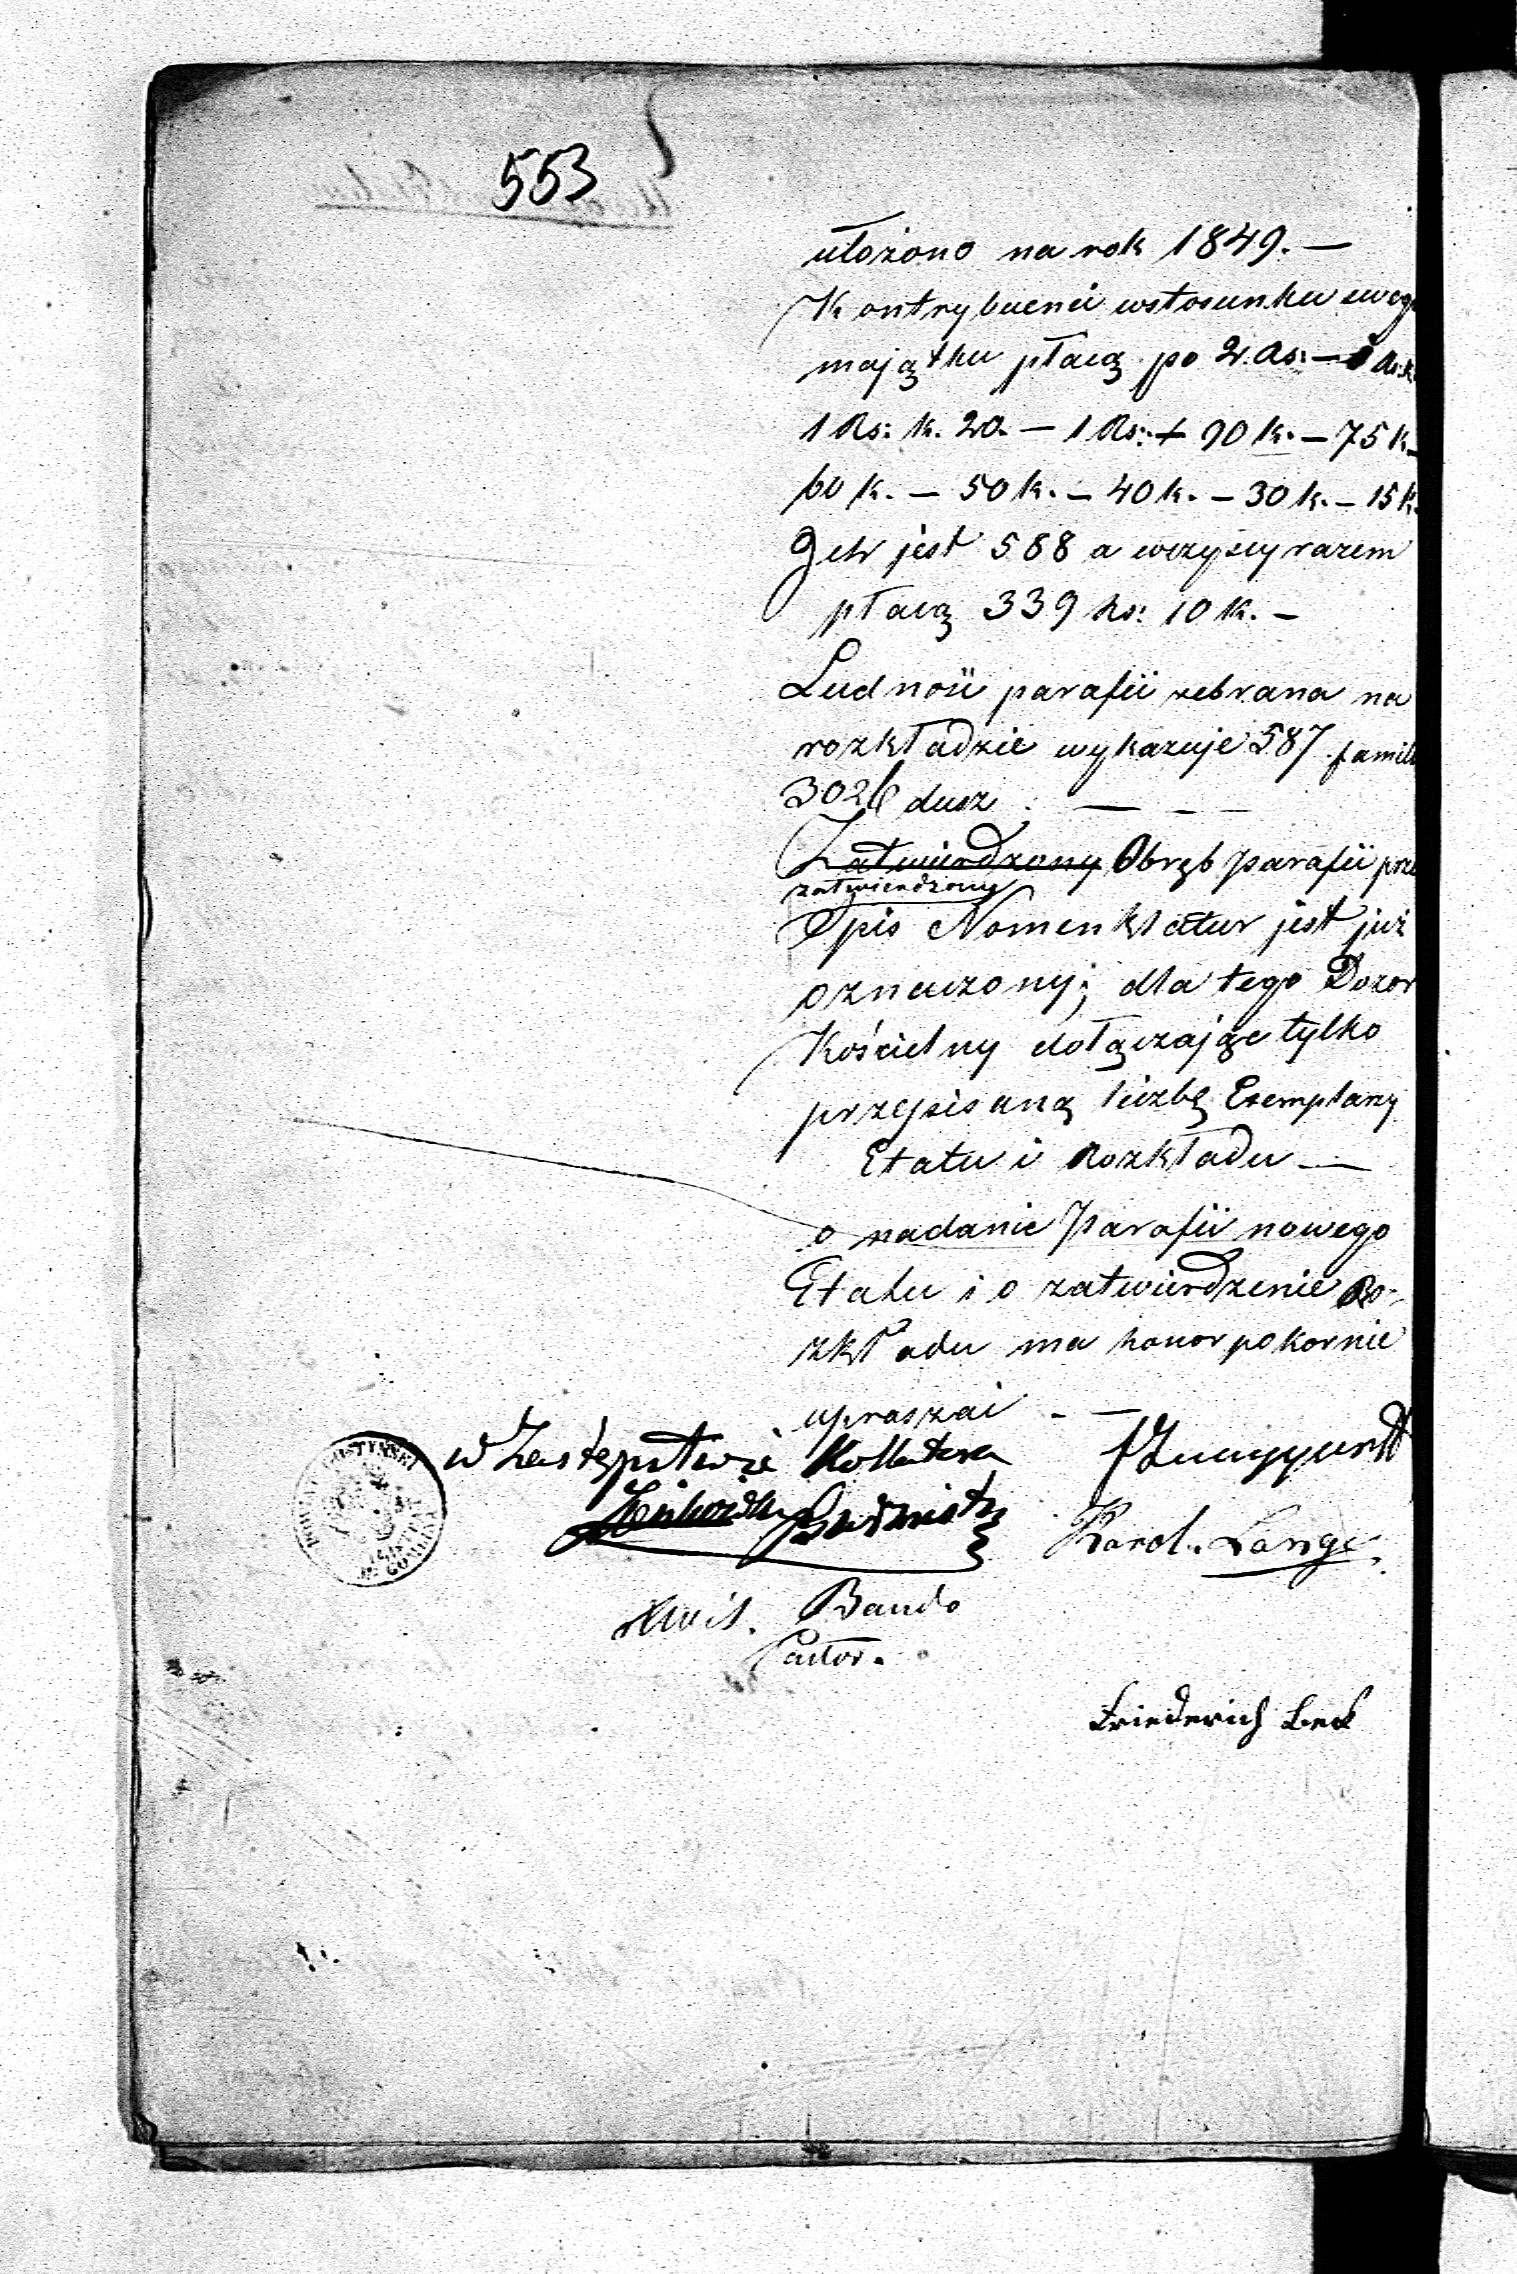 553
ułożono na rok 1849. —
Kontrybuenci wstosunku swego
majątku płacą po 2. Rs: —
1 Rs: k. 20. — 1 Rs: + 90 k. — 75 k. —
60 k. — 50 k. — 40 k. — 30 k. — 15 k.
Ich jest 588 a wszyscy razem
płacą 339 Rs: 10 k. —
Ludność parafii zebrana na
rozkładzie wykazuje 587 famili
3026 dusz. — — —
Zatwierdzony Obręb Parafii prze
zatwierdzony
Spis Nomenklatur jest już
oznaczony; dla tego Dozor
Kościelny dołączając tylko
przepisaną liczbę Exemplarzy
Etatu i Rozkładu —
o nadanie Parafii nowego
Etatu i o zatwierdzenie Ro-
zkładu ma honor pokornie
upraszać. —
w Zastępstwie Kollatora
Burmistrz
Karol. Lange.
Bando
Pastor.
Friederich Beck